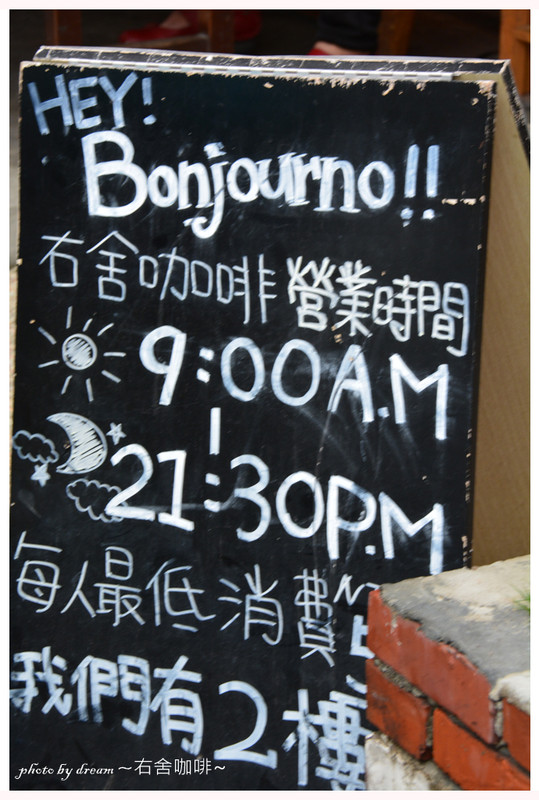 HEY!
Bonjourno!!
右舍咖啡 營業時間
9:00A.M
|
21:30P.M
每人最低消費
我們有2樓
photo by dream ～右舍咖啡～